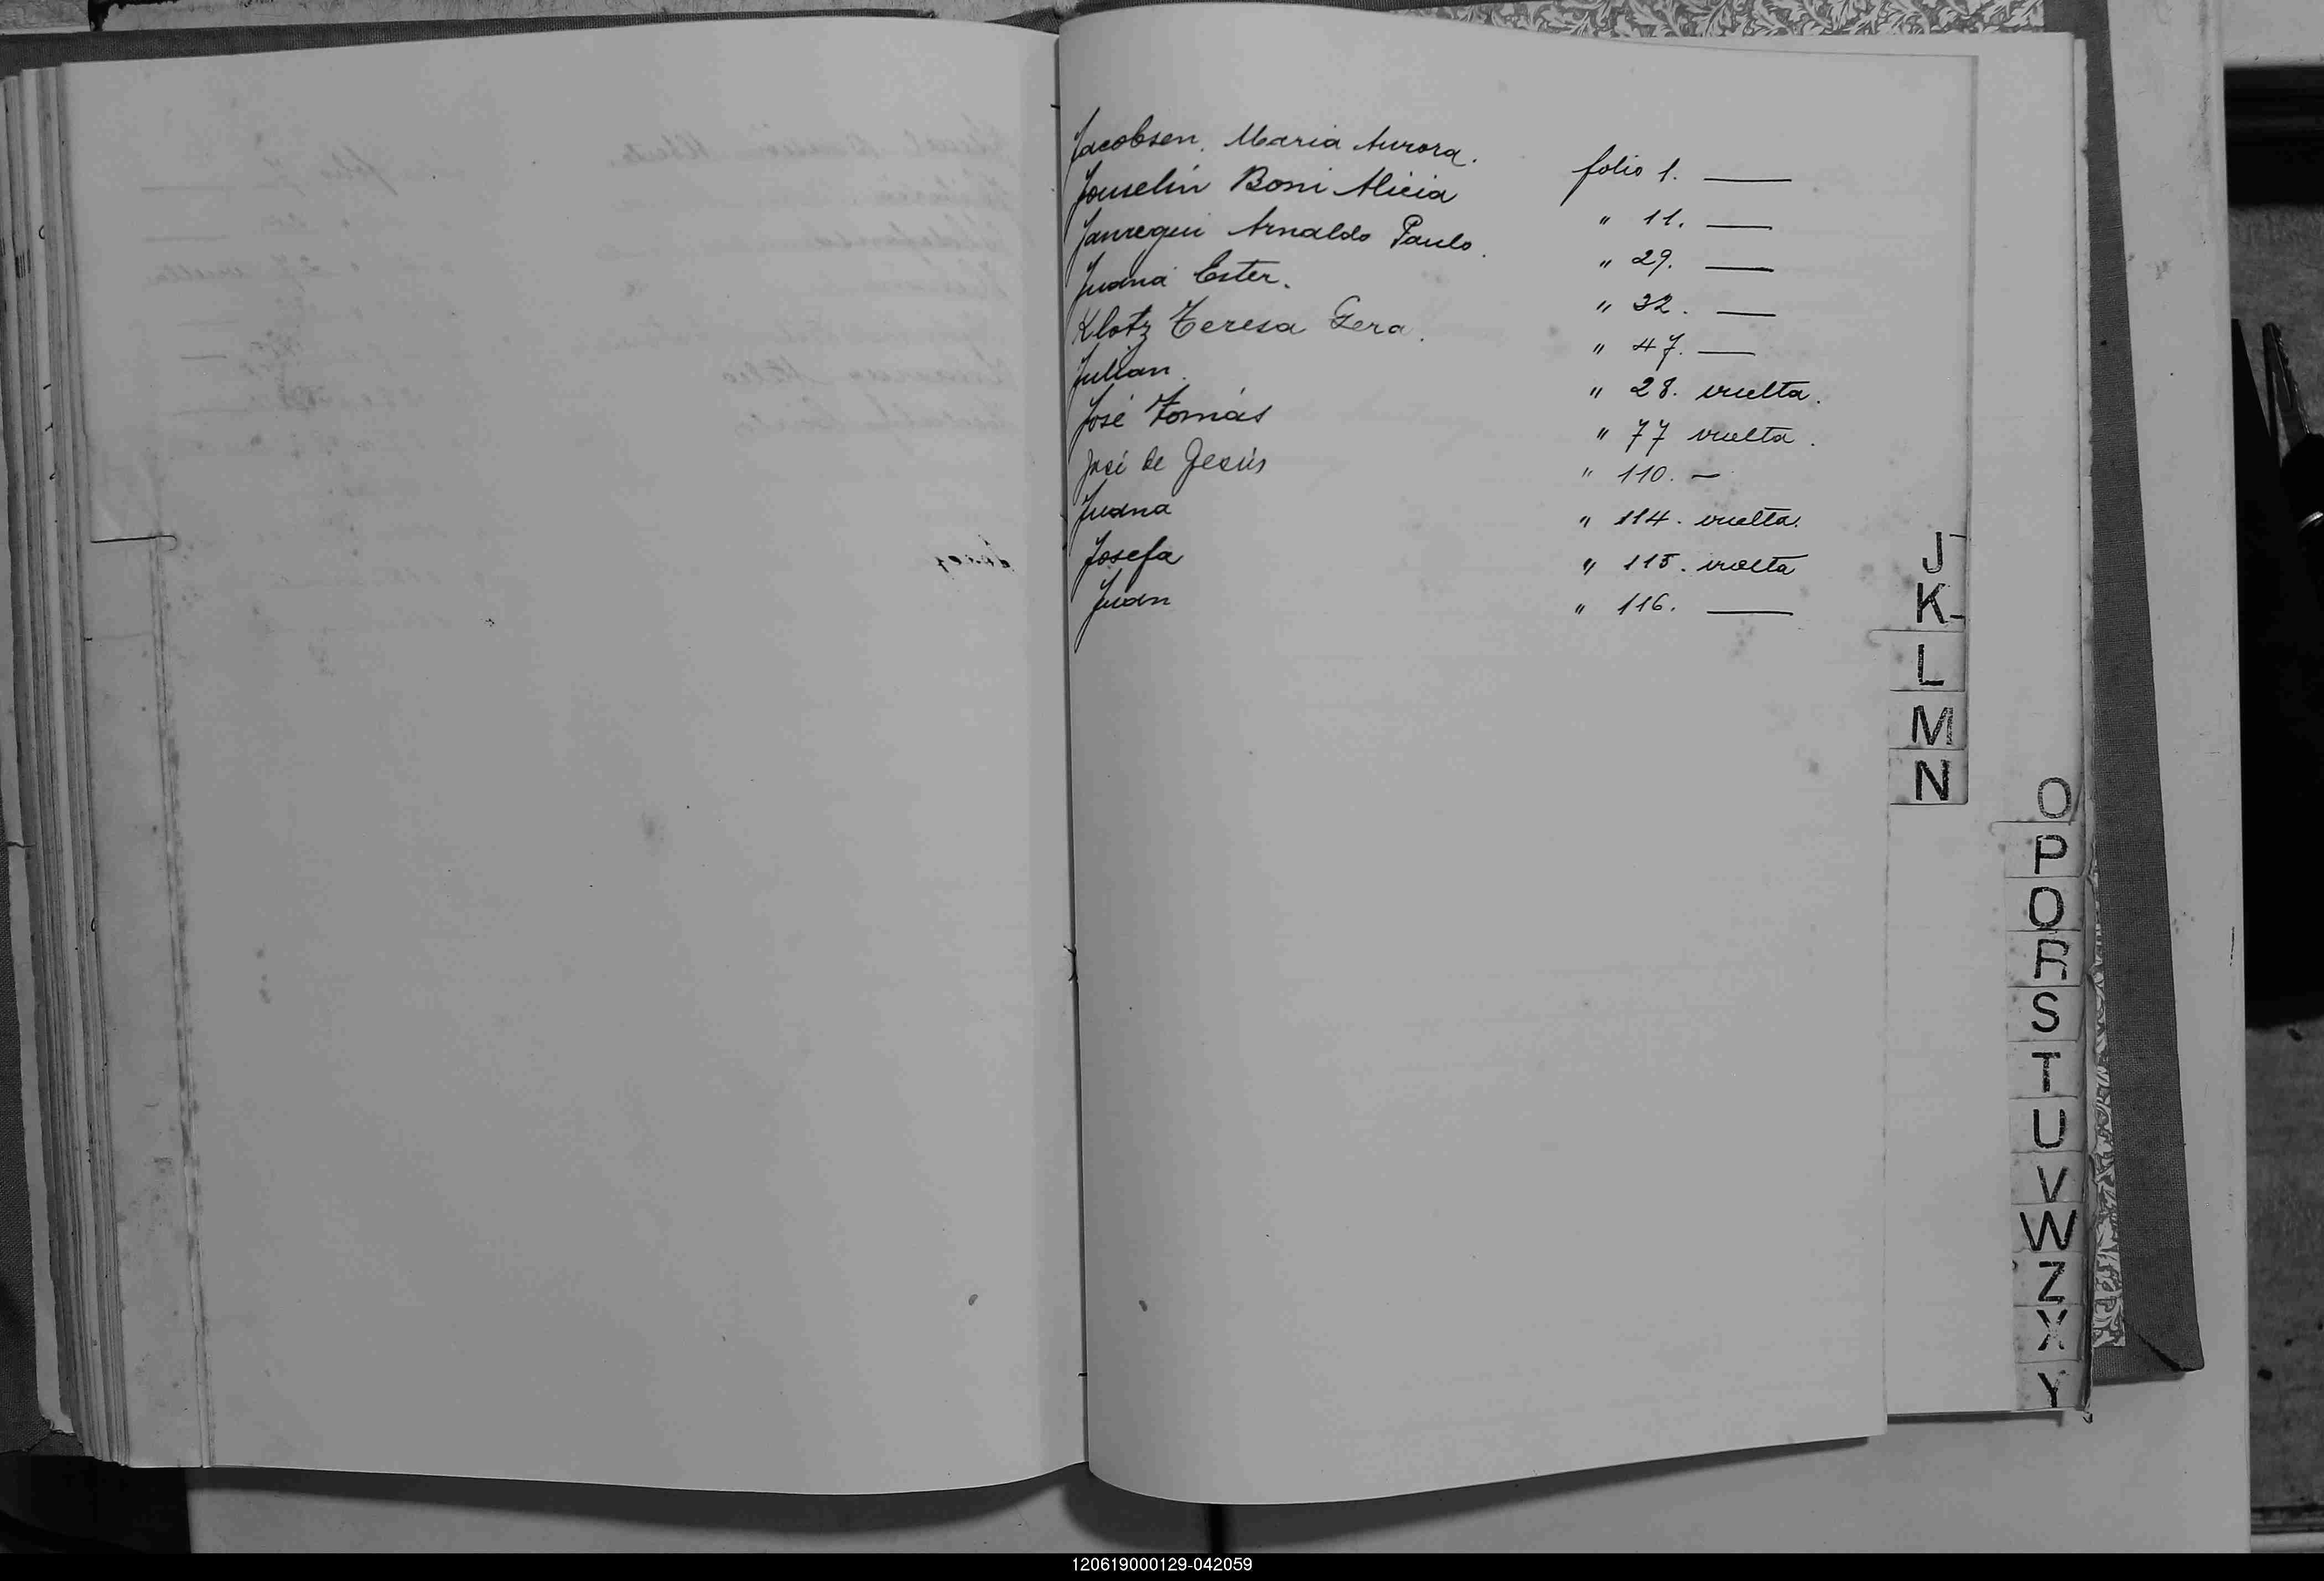 Jacobsen. Maria Aurora. folio 1. ——
Jouselin Boni Alicia " 11. ——
Jauregui Arnaldo Paulo. " 29. ——
Juana Ester. " 32. ——
Klotz Teresa Gera. " 47. ——
Julian. " 28. vuelta.
José Tomás " 77 vuelta.
José de Jesús " 110. —
Juana " 114. vuelta.
Josefa " 115. vuelta
Juan " 116. ——
J
K
L
M
N
O
P
Q
R
S
T
U
V
W
Z
X
Y
120619000129-042059